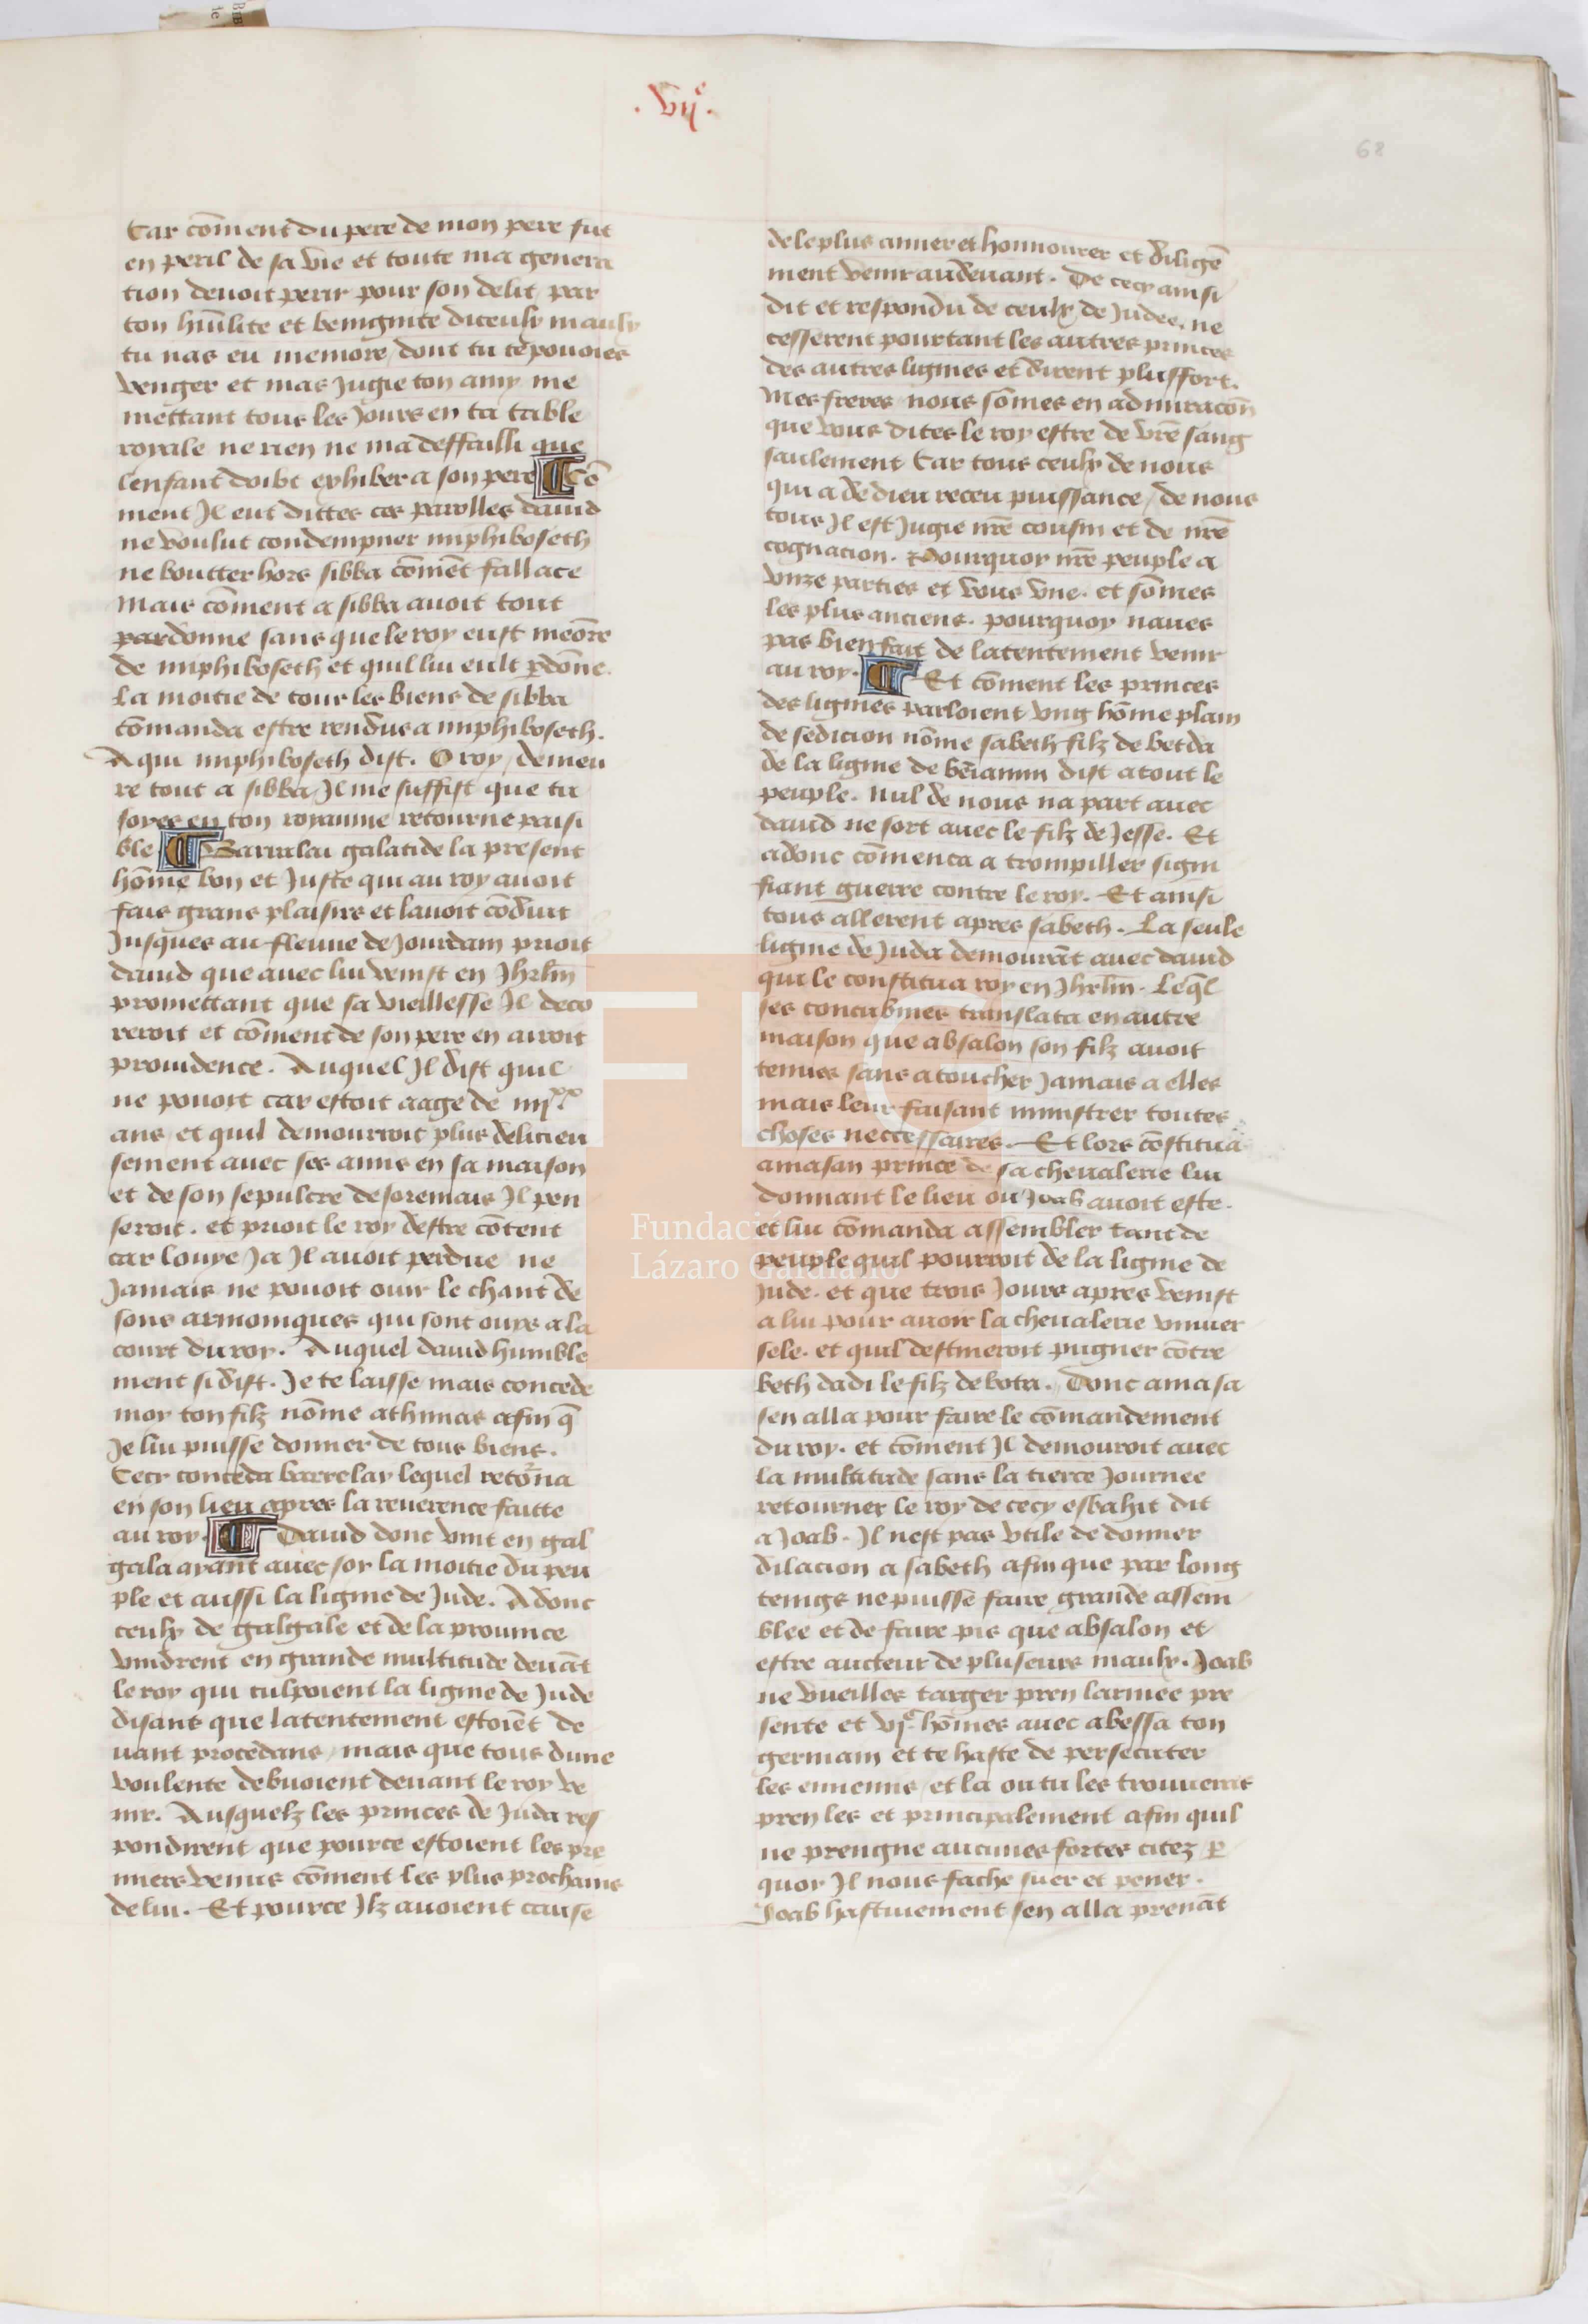 .vijͤ.
68
Car com̄ent du pere de mon pere fut
en peril de sa vie et toute ma genera
tion devoit perir pour son delit par
ton hūilite et benignite diceulx maulx
tu nas eu memore / dont tu te pouoies
venger et mas jugie ton amy me
mettant tous les jours en ta table
royale ne rien ne ma deffailli que
lenfant doibt exhiber a son pere ¶ Cō
ment Jl eut dittes ces parolles david
ne voulut condempner miphiboseth
ne boutter hors sibba com̄ēt fallace
Mais com̄ent a sibba avoit tout
pardonne sans que le roy eust meōre
de miphiboseth et quil lui eult ꝑdōne.
La moitie de tous les biens de sibba
com̄anda estre rendus a miphiboseth.
A qui miphiboseth dist. O roy / demeu
re tout a sibba / Jl me suffist que tu
soyes en ton royaume retourne paisi
ble ¶ Barzalai galatide la present
hom̄e bon et Juste qui au roy avoit
fais grans plaisirs et lavoit cōduit
Jusques au fleuve de Jourdain prioit
david que avec lui venist en Jhrl̄m
promettant que sa vieillesse Jl deco
reroit et com̄ent de son pere en auroit
providence. Auquel Jl dist quil
ne pouoit car estoit aage de iiijˣˣ
ans / et quil demourroit plus delicieu
sement avec ses amis en sa maison
et de son sepulcre desoremais Jl pen
seroit. et prioit le roy destre cōtent
car louye Ja Jl avoit perdue ne
Jamais ne pouoit ouir le chant de
sons armoniques qui sont ouys a la
court du roy. Auquel david humble
ment si dist. Je te laisse mais concede
moy ton filz nom̄e athimas afin q̄
Je lui puisse donner de tous biens.
Cecy conceda barzelay lequel retōrna
en son lieu apres la reverence faitte
au roy. ¶ David donc vint en gal
gala ayant avec soy la moitie du peu
ple et aussi la ligine de Jude. A donc
ceulx de galgale et de la province
vindrent en grande multitude devāt
le roy qui culpoient la ligine de Jude
disans que latentement estoiēt de
vant procedans / mais que tous dune
voulente debvoient devant le roy ve
nir. Ausquelz les princes de Juda res
pondirent que pource estoient les pre
miers venus com̄ent les plus prochains
de lui. Et pource Jlz avoient cause
de le plus amer et honnourer et diligē
ment venir au devant. De cecy ainsi
dit et respondu de ceulx de Judee. ne
cesserent pourtant les autres princes
des autres lignies et dirent plus fort.
Mes freres nous som̄es en admiracōn
que vous dites le roy estre de vr̄e sang
saulement Car tous ceulx de nous
qui a de dieu receu puissance / de nous
tous Jl est Jugie nr̄e cousin et de nr̄e
cognacion. Pourquoy nr̄e peuple a
unze parties et vous une. et som̄es
les plus anciens. pourquoy naves
pas bien fait de latentement venir
au roy. ¶ Et com̄ent les princes
des lignies parloient ung hom̄e plain
de sedicion nom̄e sabeth filz de betda
de la lignie de bēiamin dist a tout le
peuple. Nul de nous na part avec
david ne sort avec le filz de Jesse. Et
adonc com̄enca a trompiller signi
fiant guerre contre le roy. Et ainsi
tous allerent apres sabeth. La seule
lignie de Juda demourāt avec david
qui le constitua roy en Jhrl̄m. Leq̄l
ses concubines translata en autre
maison que absalon son filz avoit
tenues sans atoucher Jamais a elles
mais leur faisant ministrer toutes
choses neccessaires. Et lors cōstitua
amasan prince de sa chevalerie lui
donnant le lieu ou Joab avoit este.
et lui com̄anda assembler tant de
peuple quil pourroit de la lignie de
Jude. et que trois Jours apres venist
a lui pour avoir la chevalerie univer
sele. et quil destineroit pugner cōtre
beth dadi le filz de bota. Donc amasa
sen alla pour faire le com̄andement
du roy. et com̄ent Jl demouroit avec
la multitude sans la tierce Journee
retourner le roy de cecy esbahit dit
a Joab. Jl nest pas utile de donner
dilacion a sabeth afin que par long
temps ne puisse faire grande assem
blee et de faire pis que absalon et
estre aucteur de pluseurs maulx. Joab
ne vueilles targer pren larmee pre
sente et vjͨ. hom̄es avec abessa ton
germain et te haste de persecuter
les ennemis / et la ou tu les trouveras
pren les et principalement afin quil
ne prengne aucunes fortes citez ꝑ
quoy Jl nous fache suer et pener.
Joab hastivement sen alla prenāt
Fundación
Lázaro Galdiano